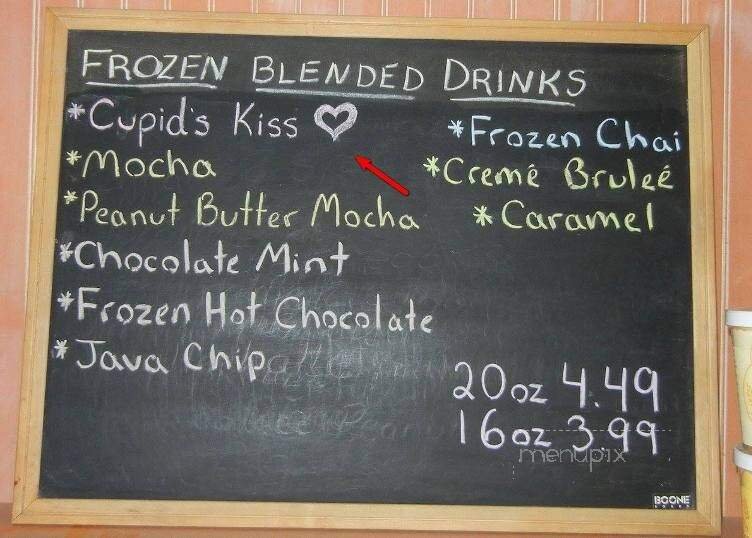 FROZEN BLENDED DRINKS
*Cupid's Kiss
*Mocha
*Peanut Butter Mocha
*Chocolate Mint
*Frozen Hot Chocolate
*Java Chip
*Frozen Chai
*Cremé Bruleé
*Caramel
20oz 4.49
16oz 3.99
menupix
BOONE